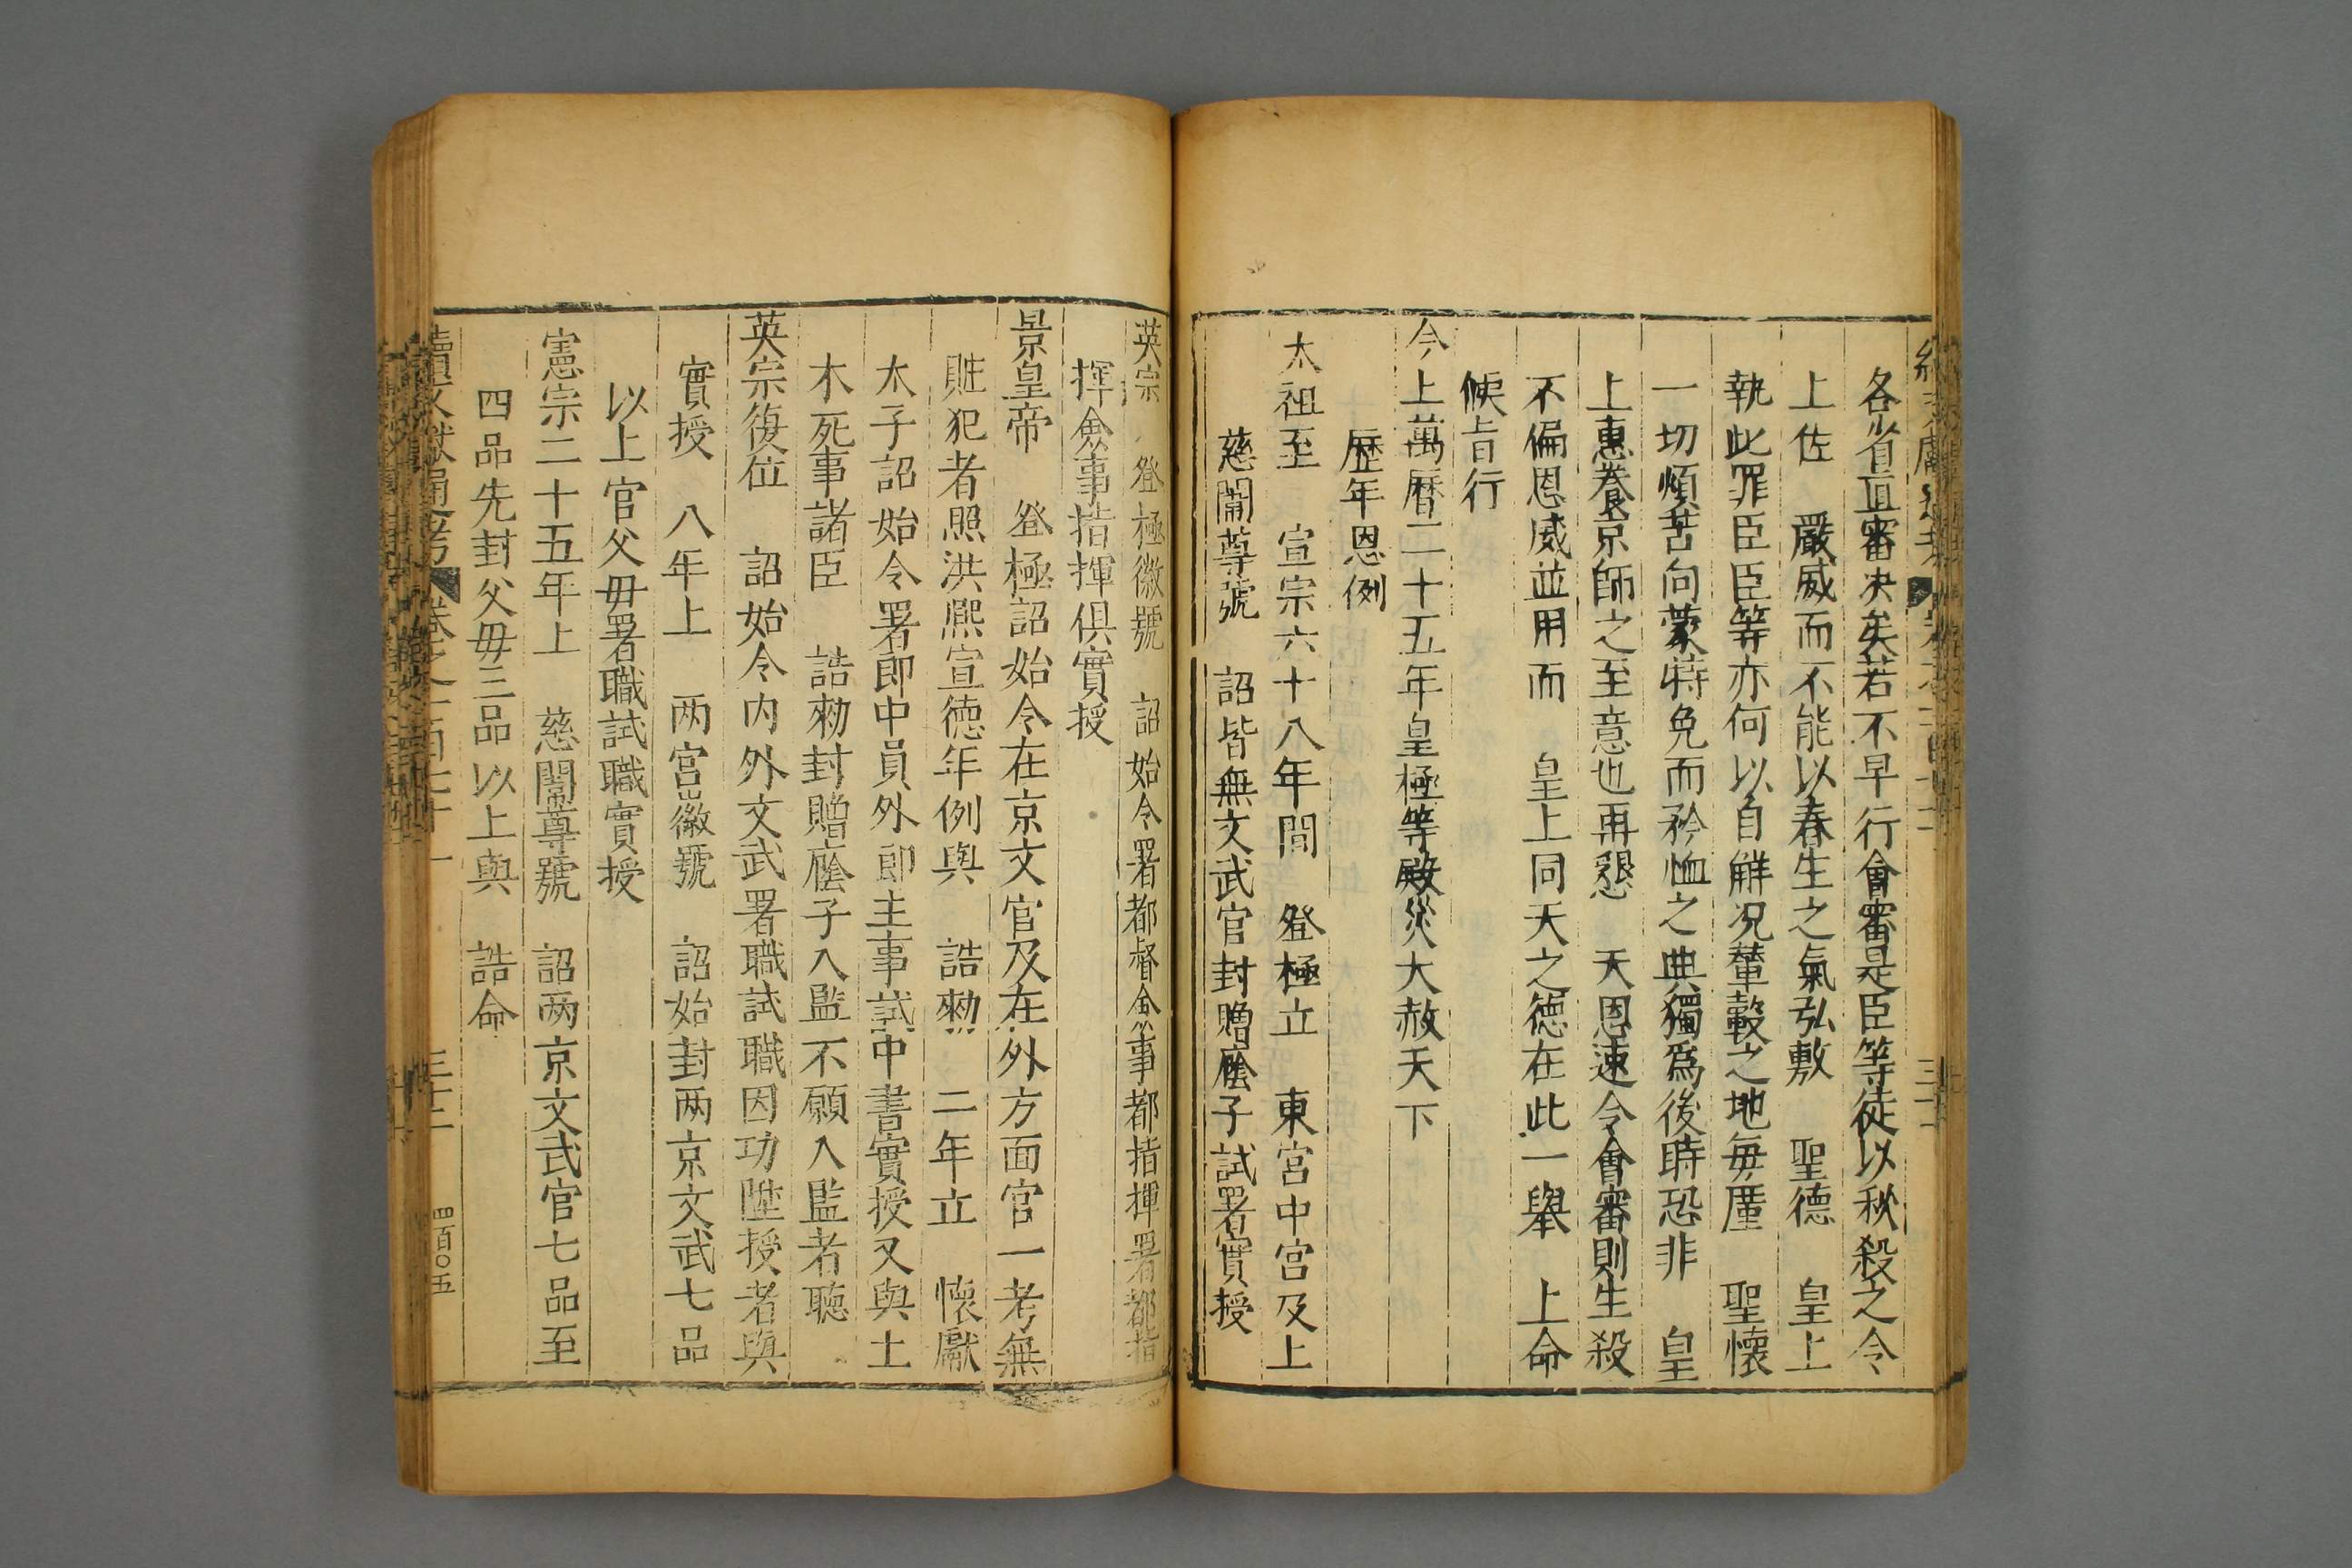 各省直審决矣若不早行會審是臣等徒以秋殺之令
上佐　嚴威而不能以春生之氣弘敷　聖德　皇上
執此罪臣臣等亦何以自觧况輦轂之地每厪　聖懷
一切煩苦向蒙特免而矜恤之典獨爲後時恐非　皇
上惠養京師之至意也再懇　天恩速令會審則生殺
不偏恩威並用而　皇上同天之德在此一舉　上命
候旨行
今上萬曆二十五年皇極等殿災大赦天下
歷年恩例
太祖至　宣宗六十八年間　登極立　東宮中宮及上
慈闈尊號　詔皆無文武官封贈廕子試署實授
英宗　登極徽號　詔始令署都督僉事都指揮署都指
揮僉事指揮俱實授
景皇帝　登極詔始令在京文官及在外方面官一考無
賍犯者照洪熈宣德年例與　誥勑　二年立　懷獻
太子詔始令署郎中員外郎主事試中書實授又與土
木死事諸臣　誥勑封贈廕子入監不願入監者聽
英宗復位　詔始令内外文武署職試職因功陞授者與
實授　八年上　两宮徽號　詔始封两京文武七品
以上官父毋署職試職實授
憲宗二十五年上　慈闈尊號　詔两京文武官七品至
四品先封父毋三品以上與　誥命
續文獻通考　卷之一百七十一　三十二　四百〇五